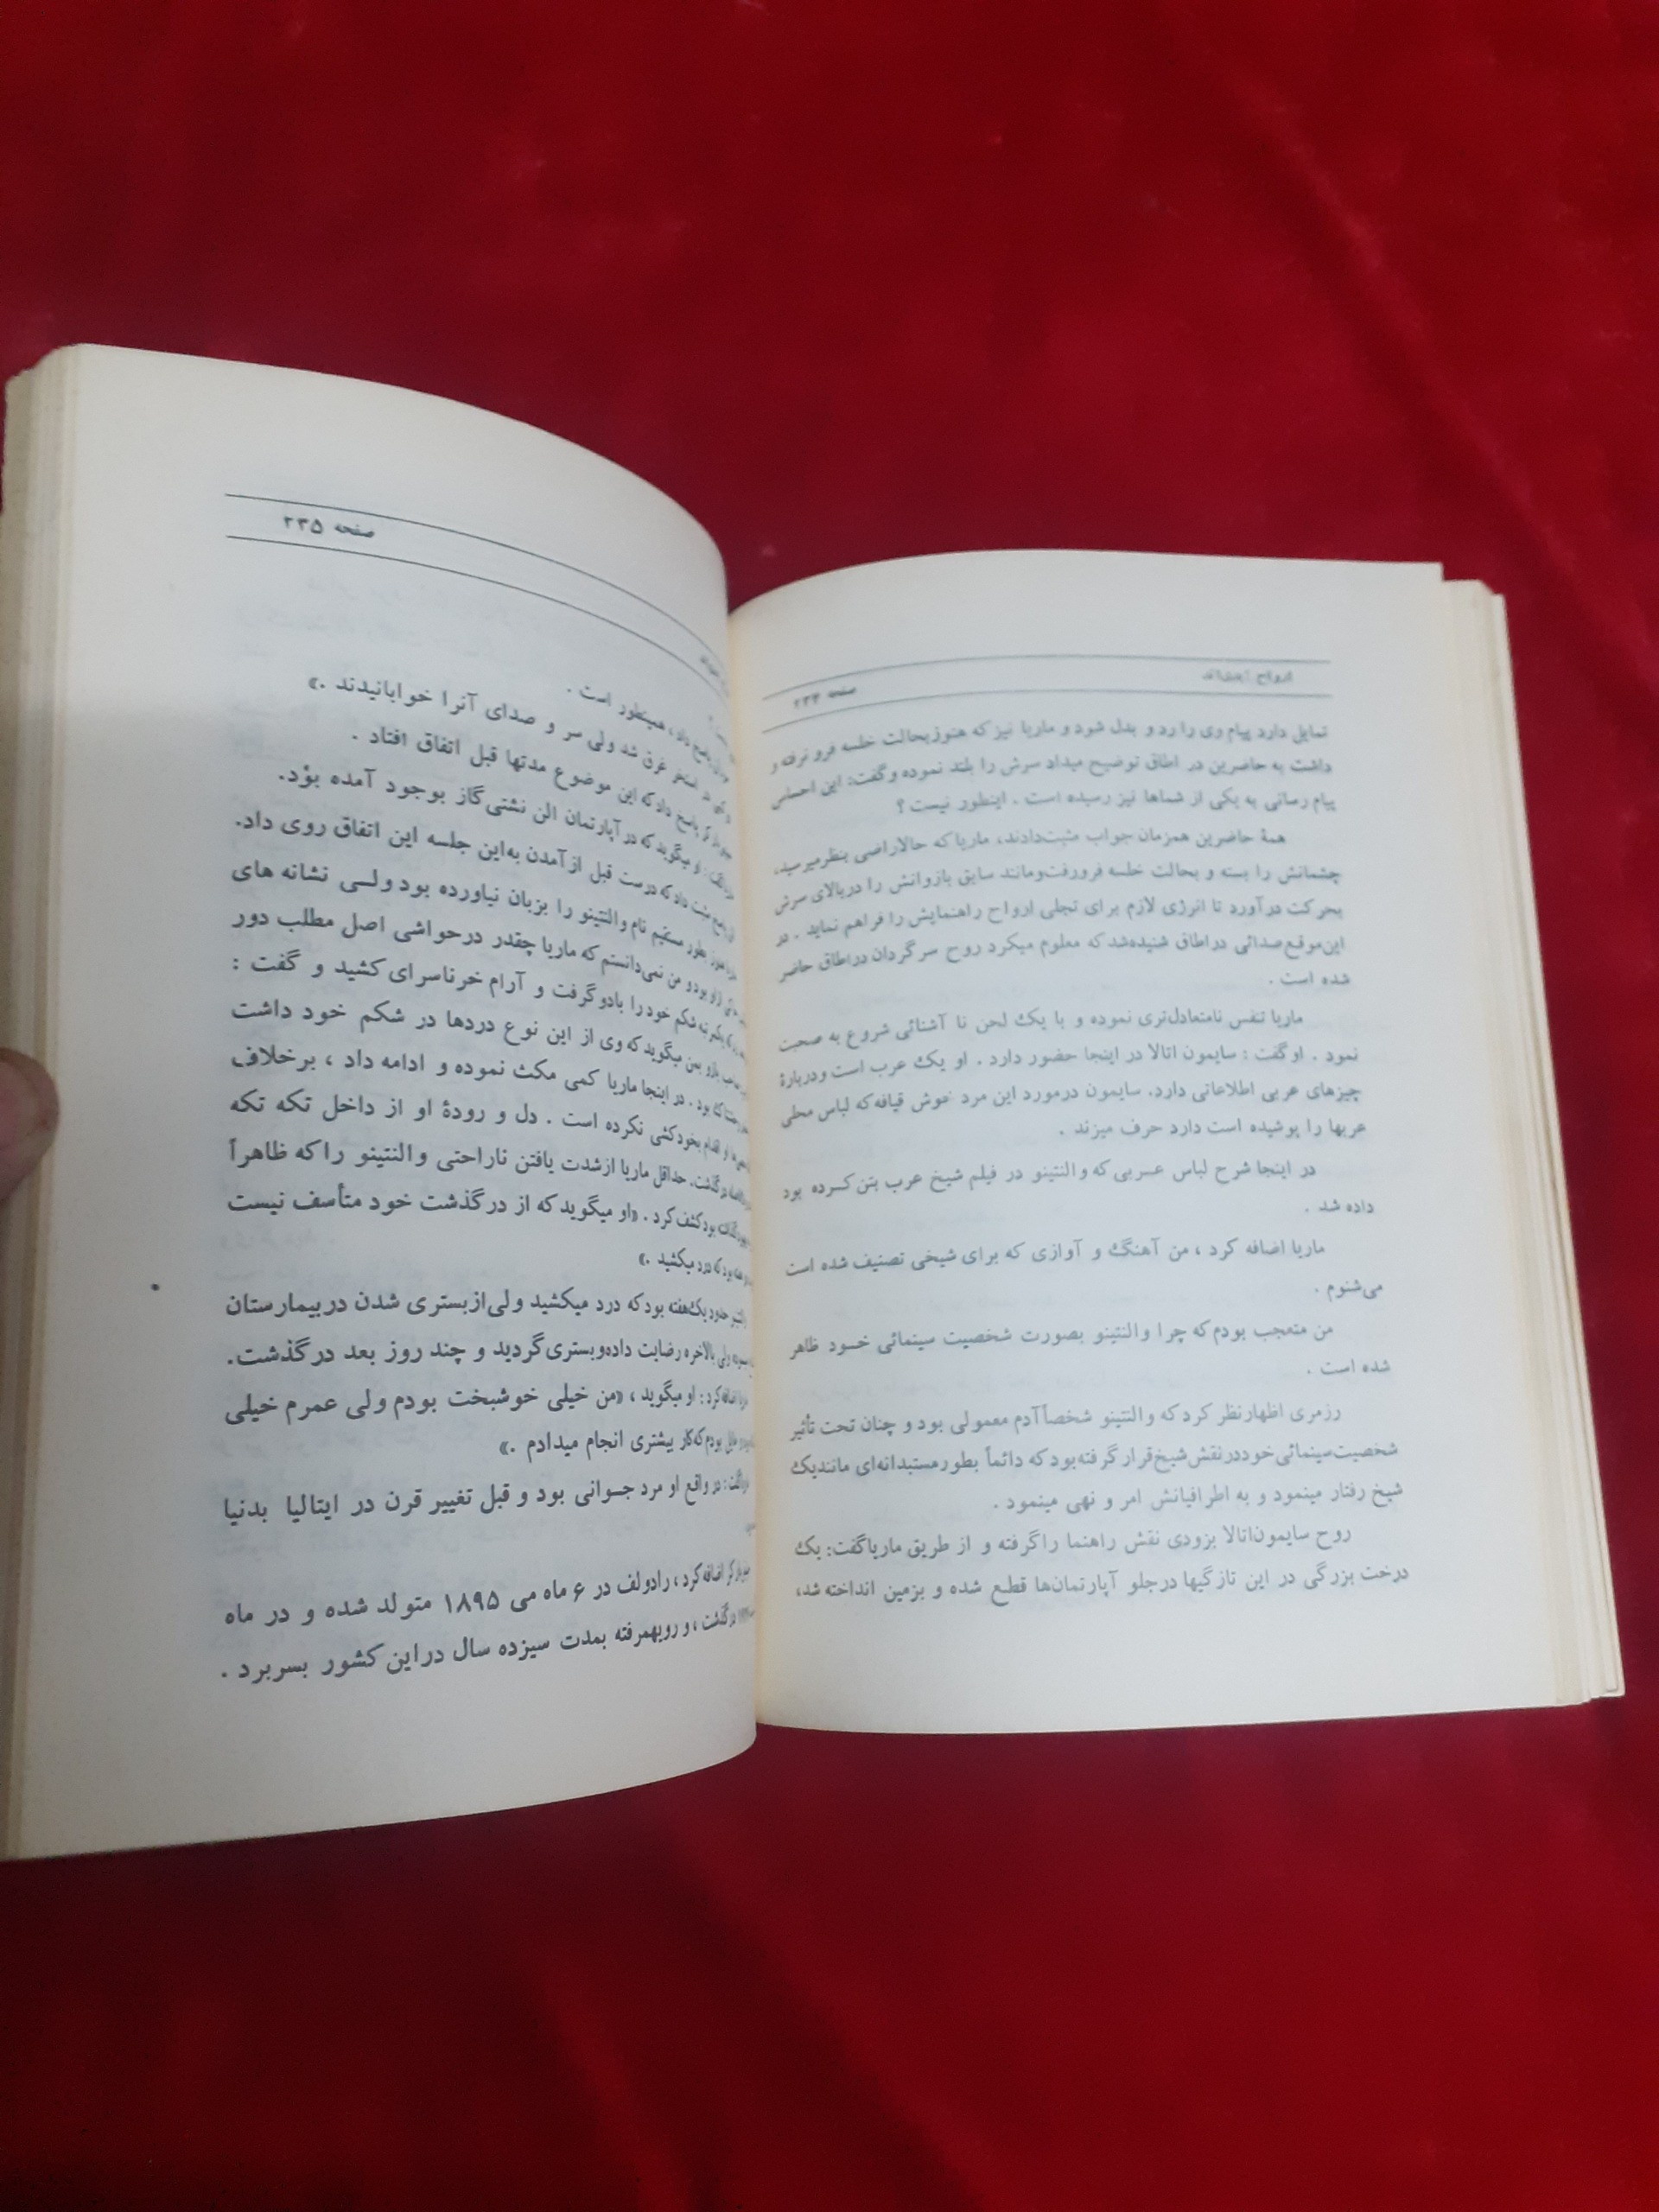 ارواح
صفحه ۲۳۴
تمایل دارد پیام وی را رد و بدل شود و ماریا نیز که هنوز بحالت خلسه فرو نرفته و
داشت به حاضرین در اطاق توضیح میداد سرش را بلند نموده و گفت: این احساس
پیام رسانی به یکی از شماها نیز رسیده است . اینطور نیست ؟
همهٔ حاضرین همزمان جواب مثبت دادند، ماریا که حالا راضی بنظر میرسید،
چشمانش را بسته و بحالت خلسه فرورفت و مانند سابق بازوانش را در بالای سرش
بحرکت در آورد تا انرژی لازم برای تجلی ارواح راهنمایش را فراهم نماید . در
این موقع صدائی در اطاق شنیده شد که معلوم میکرد روح سرگردان در اطاق حاضر
شده است .
ماریا تنفس نامتعادل تری نموده و با یک لحن نا آشنائی شروع به صحبت
نمود . او گفت : سایمون اتالا در اینجا حضور دارد . او یک عرب است و دربارهٔ
چیزهای عربی اطلاعاتی دارد، سایمون در مورد این مرد خوش قیافه که لباس محلی
عربها را پوشیده است دارد حرف میزند .
در اینجا شرح لباس عربی که والنتینو در فیلم شیخ عرب بتن کرده بود
داده شد .
ماریا اضافه کرد ، من آهنگ و آوازی که برای شیخی تصنیف شده است
می‌شنوم .
من متعجب بودم که چرا والنتینو بصورت شخصیت سینمائی خود ظاهر
شده است .
رزمری اظهار نظر کرد که والنتینو شخصاً آدم معمولی بود و چنان تحت تأثیر
شخصیت سینمائی خود در نقش شیخ قرار گرفته بود که دائماً بطور مستبدانه‌ای مانند یک
شیخ رفتار مینمود و به اطرافیانش امر و نهی مینمود .
روح سایمون اتالا بزودی نقش راهنما را گرفته و از طریق ماریا گفت: یک
درخت بزرگی در این تازگیها در جلو آپارتمان‌ها قطع شده و بزمین انداخته شد،
صفحه ۲۳۵
داد ، همینطور است .
استخر غرق شد ولی سر و صدای آنرا خوابانیدند .»
پاسخ داد که این موضوع مدتها قبل اتفاق افتاد .
او میگوید که در آپارتمان الن نشتی گاز بوجود آمده بود.
مثبت داد که درست قبل از آمدن به این جلسه این اتفاق روی داد.
بطور مستقیم نام والنتینو را بزبان نیاورده بود ولی نشانه های
از او بود و من نمی‌دانستم که ماریا چقدر در حواشی اصل مطلب دور
شکم خود را با دو گرفت و آرام خرناسه‌ای کشید و گفت :
بمن میگوید که وی از این نوع دردها در شکم خود داشت
بود . در اینجا ماریا کمی مکث نموده و ادامه داد ، برخلاف
او اقدام بخودکشی نکرده است . دل و رودهٔ او از داخل تکه تکه
درگذشت، حداقل ماریا از شدت یافتن ناراحتی والنتینو را که ظاهراً
بود کشف کرد . «او میگوید که از درگذشت خود متأسف نیست
بود که درد میکشید .»
حدود یک هفته بود که درد میکشید ولی از بستری شدن در بیمارستان
ولی بالاخره رضایت داده و بستری گردید و چند روز بعد درگذشت.
اضافه کرد : او میگوید ، «من خیلی خوشبخت بودم ولی عمرم خیلی
بودم که کار بیشتری انجام میدادم .»
گفت : در واقع او مرد جوانی بود و قبل تغییر قرن در ایتالیا بدنیا
اضافه کرد ، رادولف در ۶ ماه می ۱۸۹۵ متولد شده و در ماه
درگذشت ، و رویهمرفته بمدت سیزده سال در این کشور بسر برد .